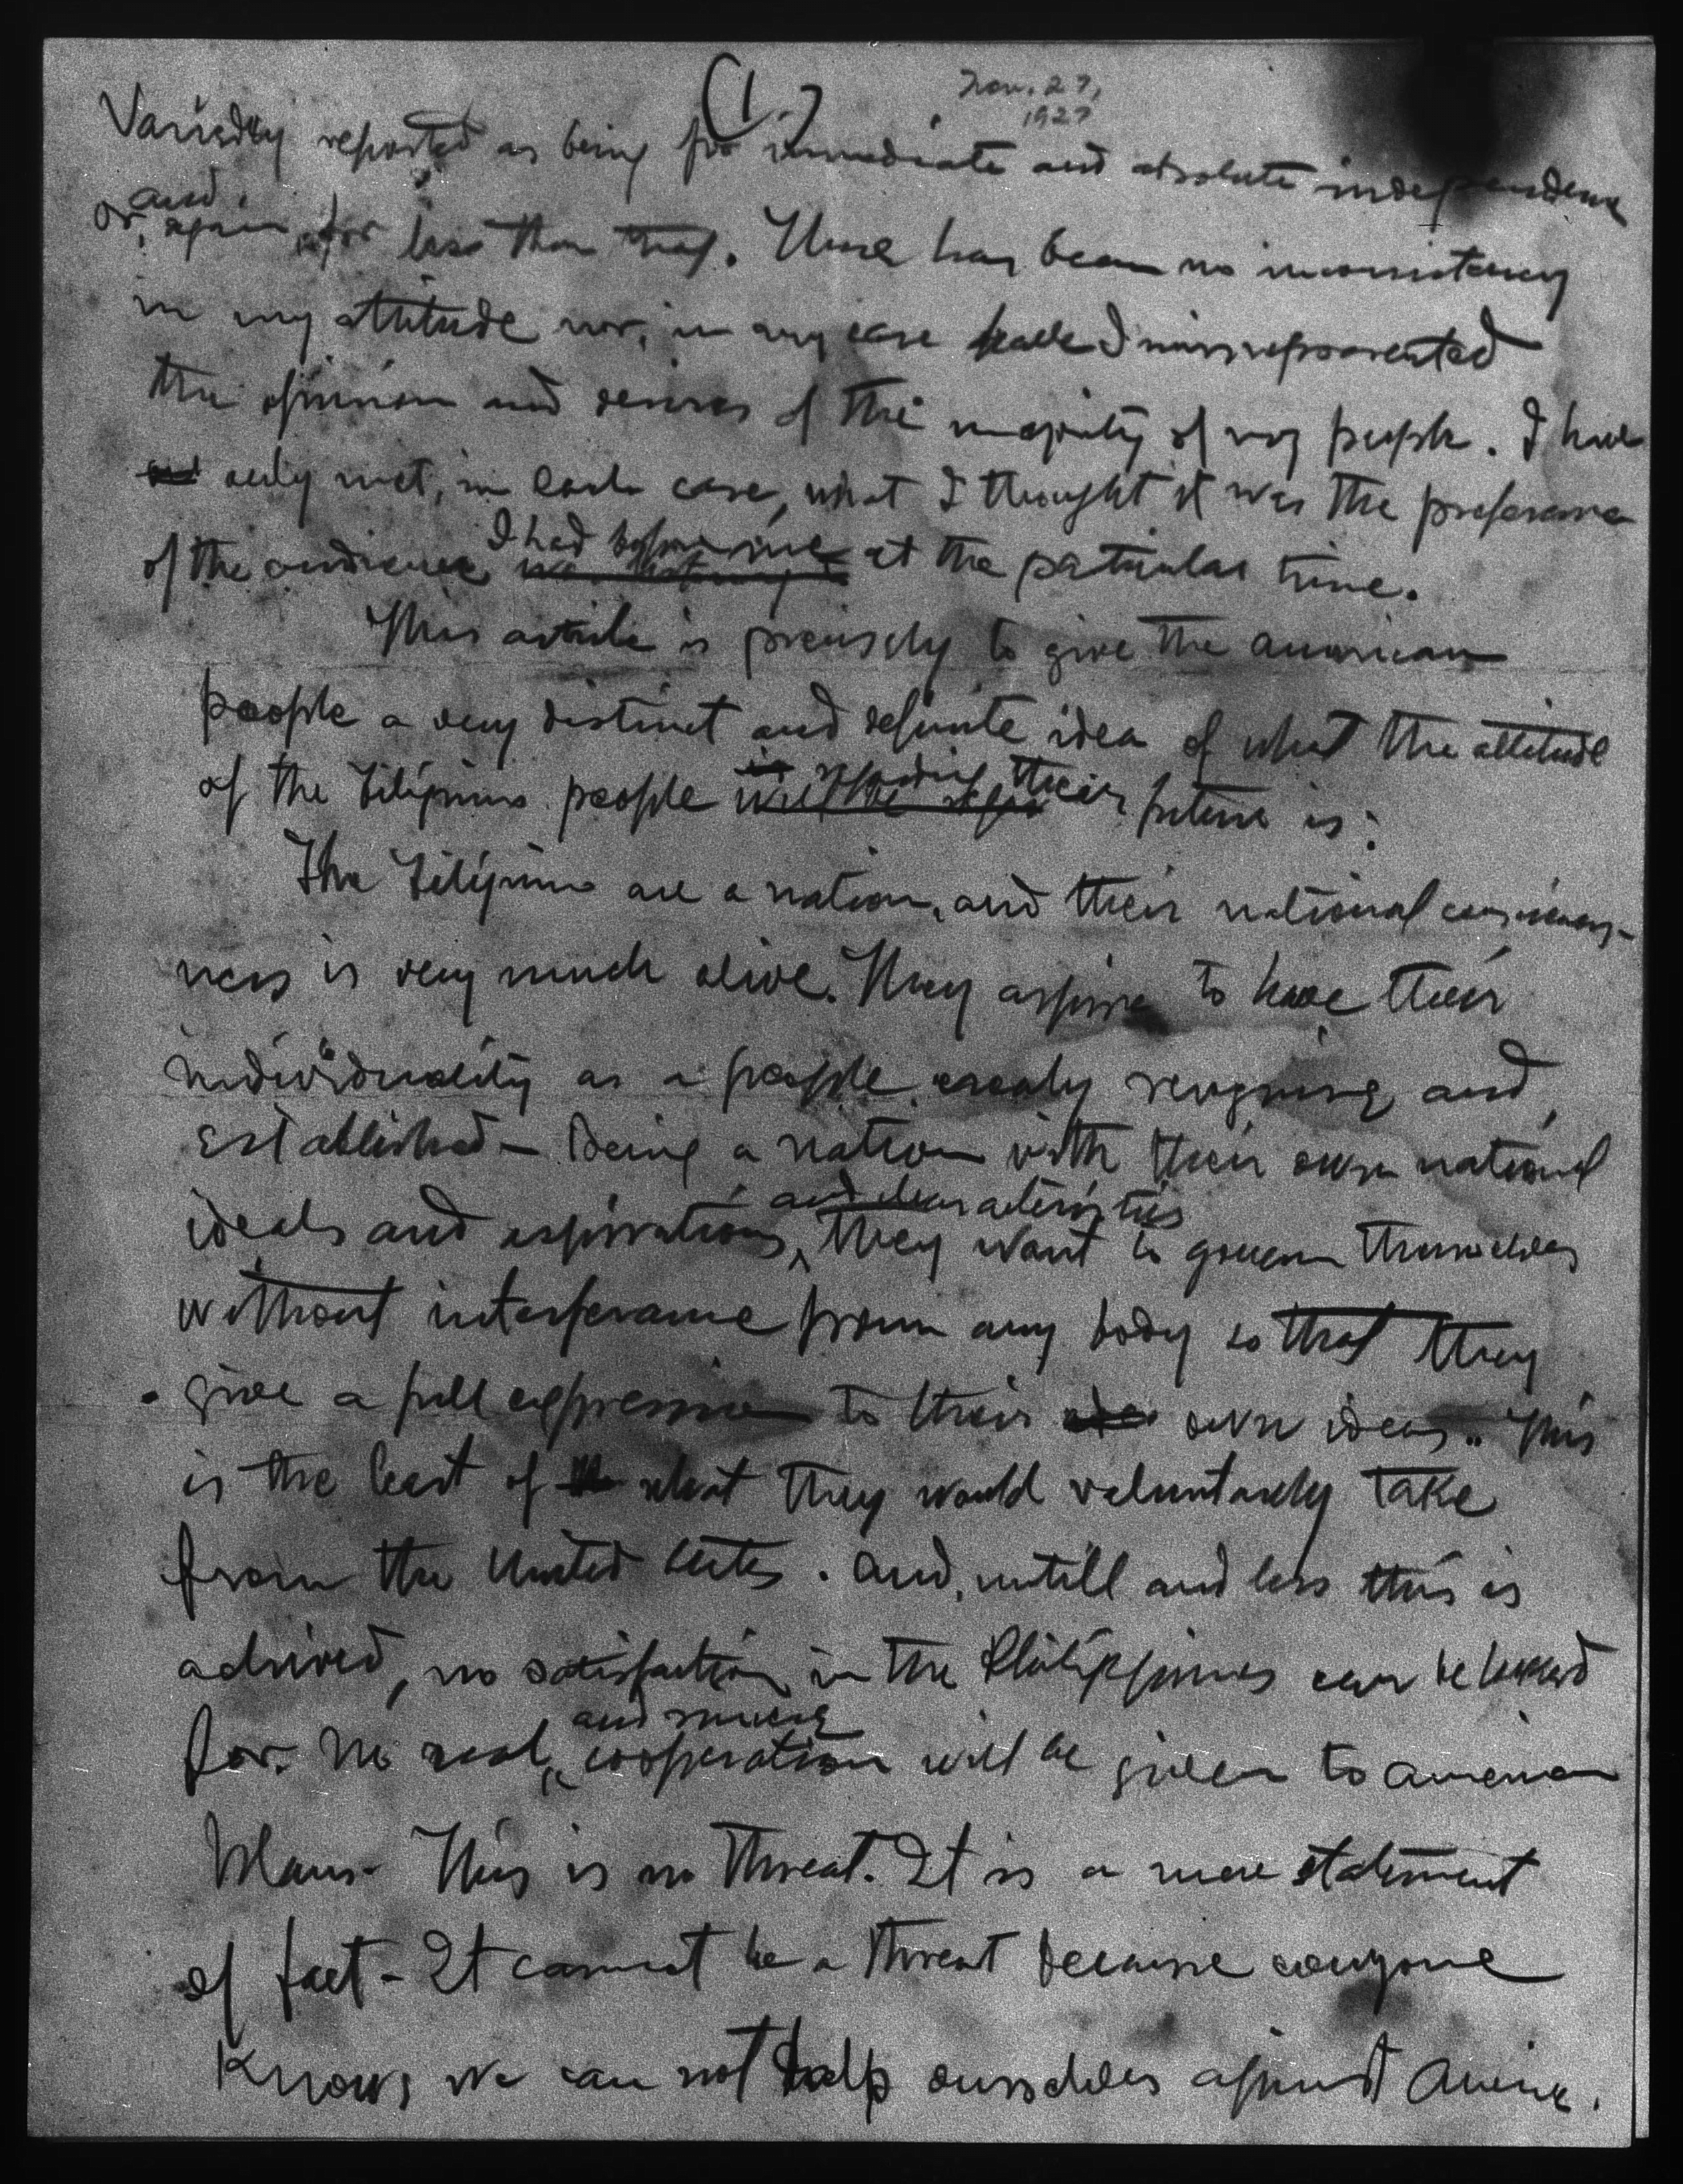 (1.)
Nov. 27,
1927
Variedly reported as being for immediate and absolute independence
and
or, again, for less than that. There has been no inconsistency
in my attitude nor, in any case have I misrepresented
the opinion and desires of the majority of my people. I have
only met, in each case, what I thought it was the preference
I had before me
of the audience at the particular time.
This article is precisely to give the American
people a very distinct and definite idea of what the attitude
regarding their
of the Filipino people future is:
The Filipinos are a nation, and their national conscious-
ness is very much alive. They aspire to have their
individuality as a people recognize and
established - Being a nation with their own national
and characteristics
ideals and aspirations, they want to govern themselves
without interference from any body so that they
give a full expression to their own ideas. This
is the least of what they would voluntarely take
from the United States. And, untill and less this is
achived, no satisfaction in the Philippines can be looked
and sincere
for. No real cooperation will be given to American
Plans - This is no threat. It is a mere statement
of fact - It cannot be a threat because everyone
Knows we can not help ourselves against America.